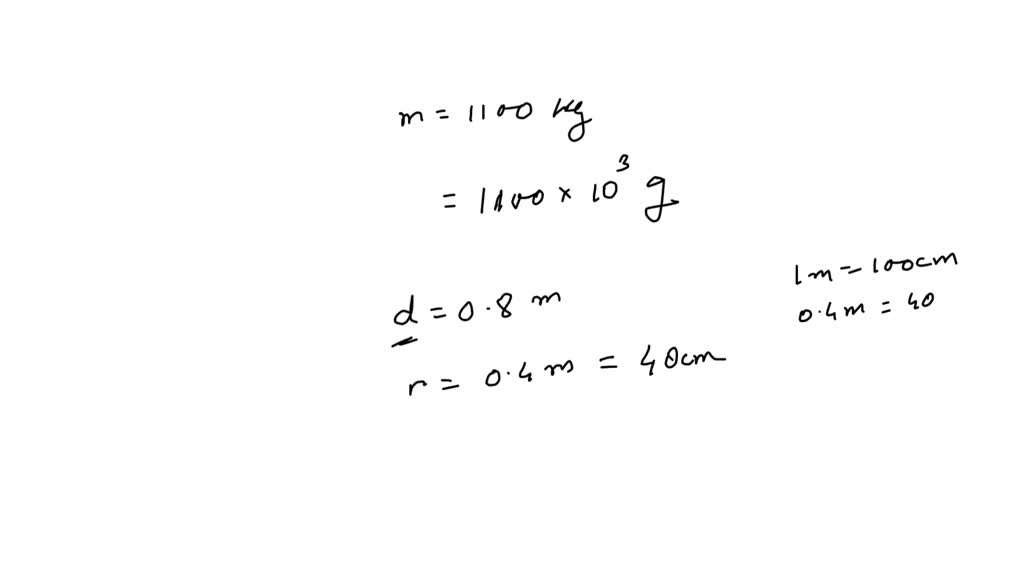 m = 1100 kg
= 1100 × 10³ g
1m = 100cm
d = 0.8 m
0.4m = 40
r = 0.4 m = 40cm